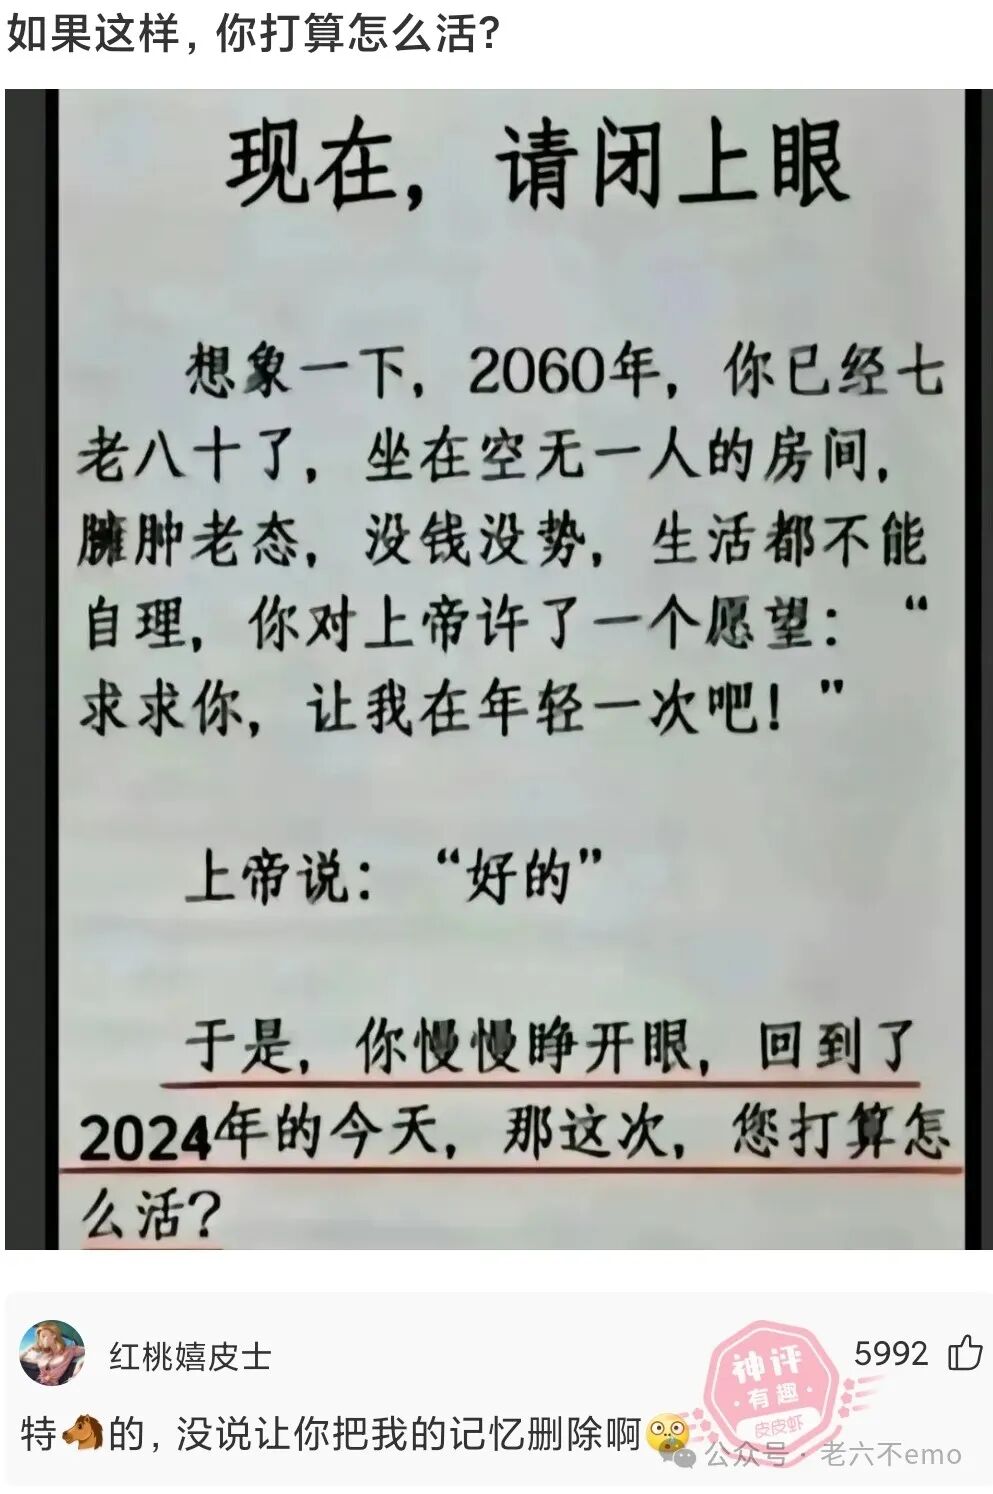 如果这样，你打算怎么活？
现在，请闭上眼
想象一下，2060年，你已经七
老八十了，坐在空无一人的房间，
臃肿老态，没钱没势，生活都不能
自理，你对上帝许了一个愿望：“
求求你，让我在年轻一次吧！”
上帝说：“好的”
于是，你慢慢睁开眼，回到了
2024年的今天，那这次，您打算怎
么活？
红桃嬉皮士
5992
神评
·有趣·
皮皮虾
特🐴的，没说让你把我的记忆删除啊😳
公众号·老六不emo